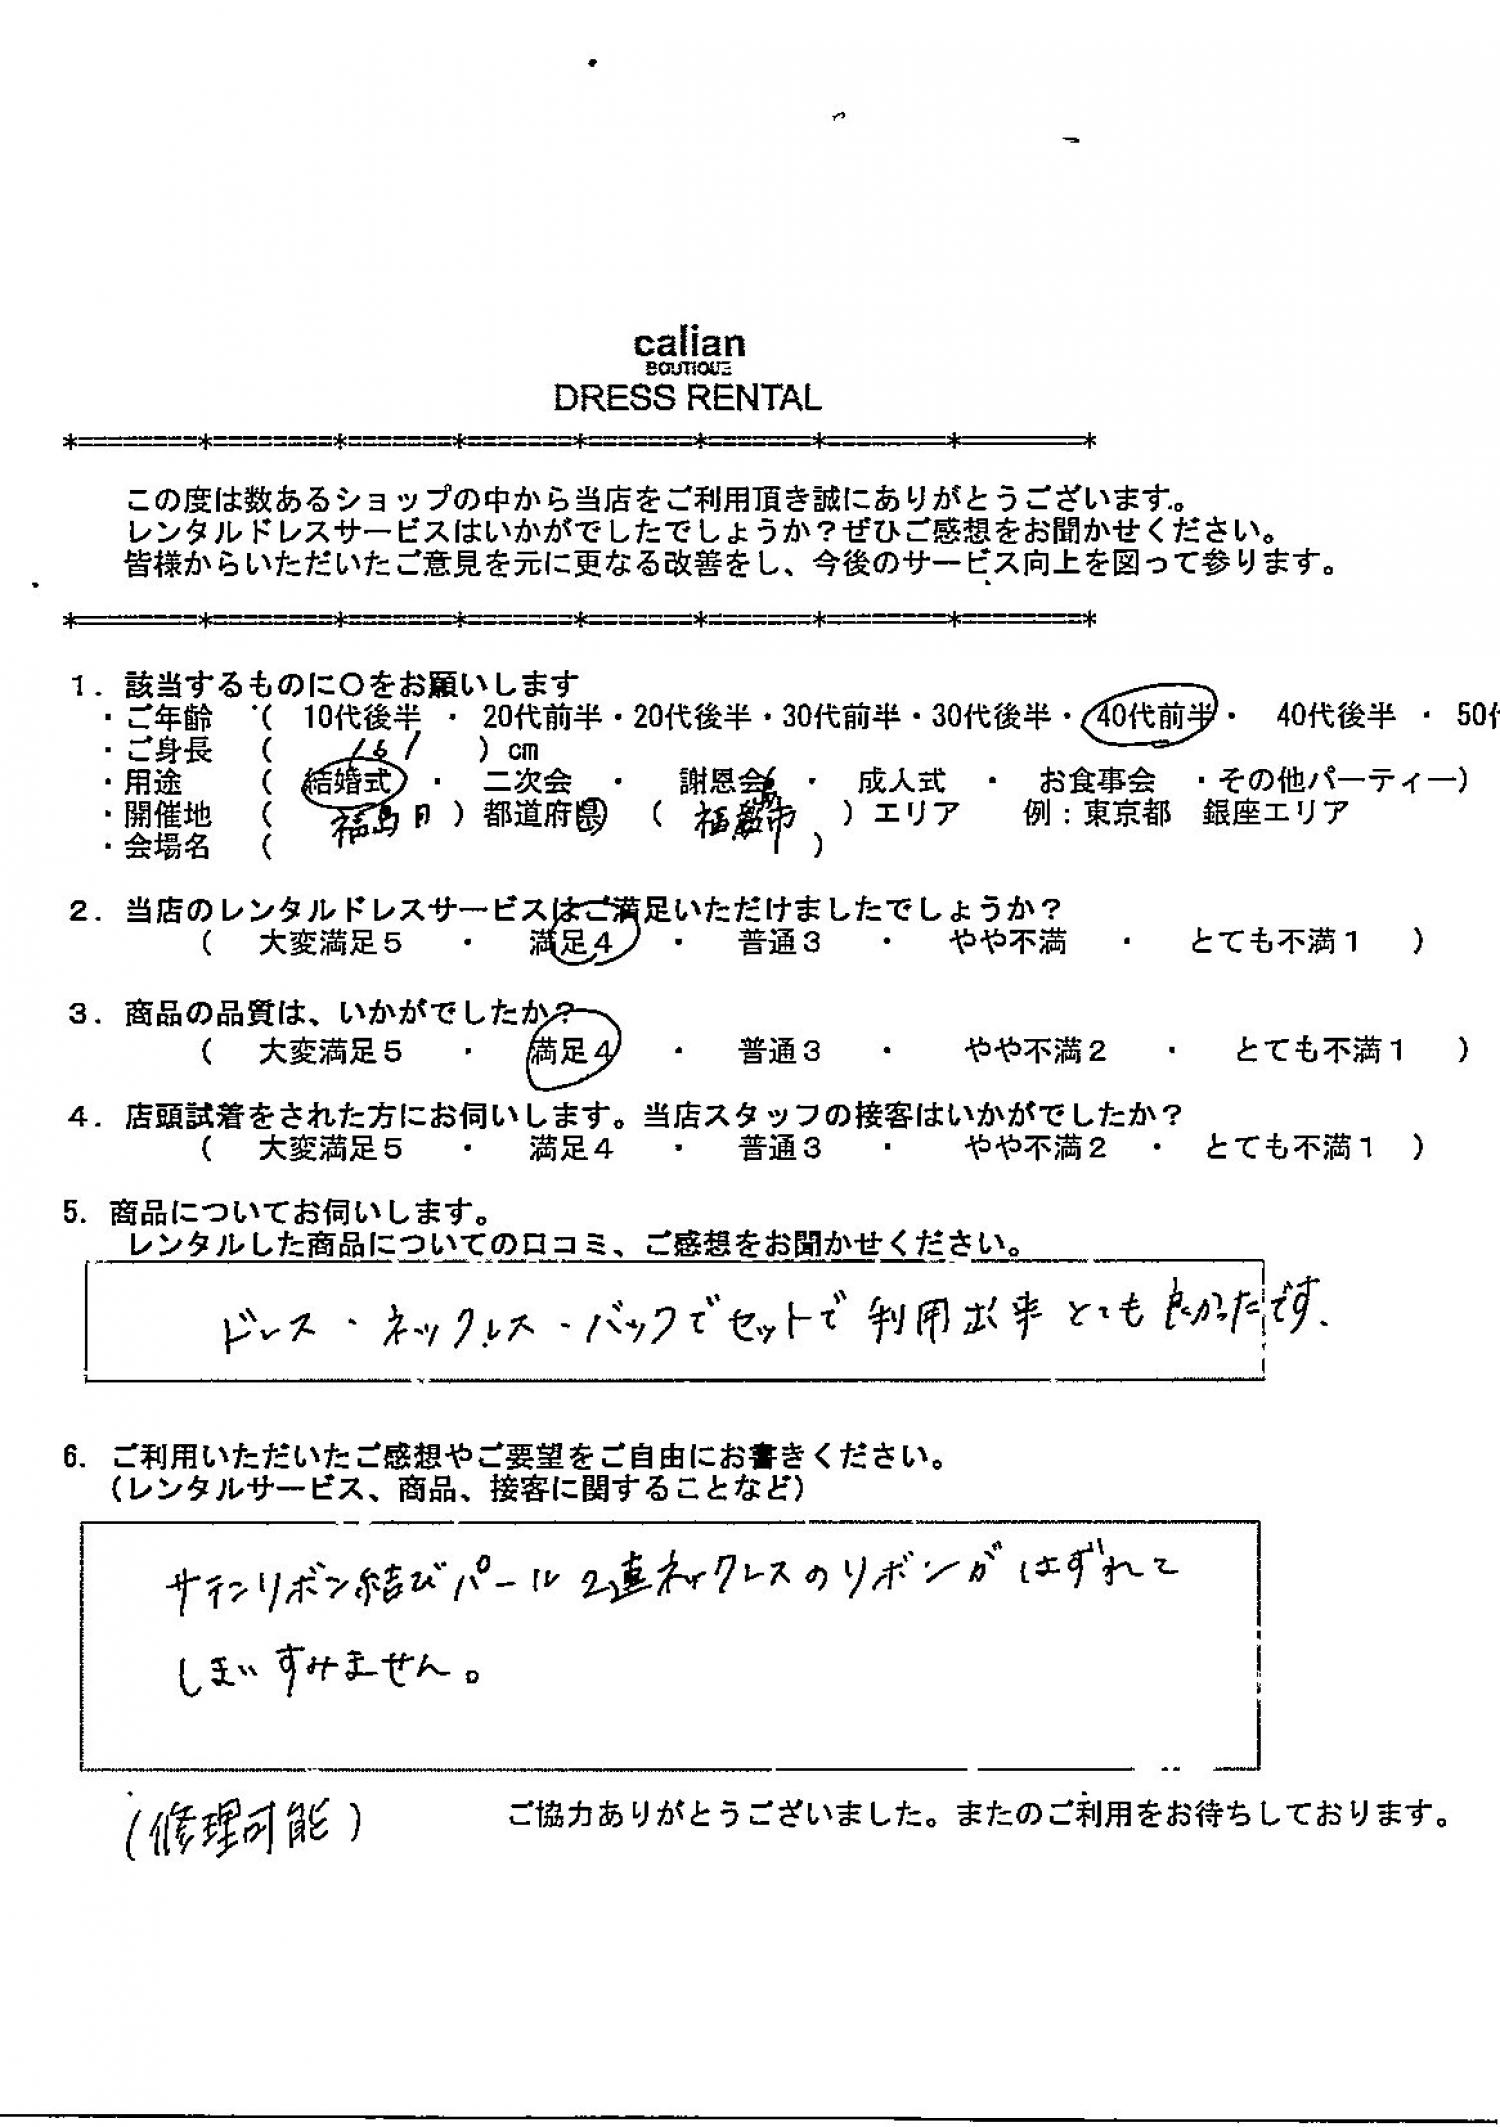 calian
BOUTIQUE
DRESS RENTAL
*========*========*========*========*========*========*========*========*
この度は数あるショップの中から当店をご利用頂き誠にありがとうございます。
レンタルドレスサービスはいかがでしたでしょうか？ぜひご感想をお聞かせください。
皆様からいただいたご意見を元に更なる改善をし、今後のサービス向上を図って参ります。
*========*========*========*========*========*========*========*========*
１．該当するものに〇をお願いします
・ご年齢 （ 10代後半 ・ 20代前半・20代後半・30代前半・30代後半・40代前半・ 40代後半 ・ 50代
・ご身長 （ 161 ）cm
・用途 （ 結婚式 ・ 二次会 ・ 謝恩会 ・ 成人式 ・ お食事会 ・その他パーティー）
・開催地 （ 福島 ）都道府県 （ 福島市 ）エリア 例：東京都 銀座エリア
・会場名 （ ）
２．当店のレンタルドレスサービスはご満足いただけましたでしょうか？
（ 大変満足５ ・ 満足４ ・ 普通３ ・ やや不満 ・ とても不満１ ）
３．商品の品質は、いかがでしたか？
（ 大変満足５ ・ 満足４ ・ 普通３ ・ やや不満２ ・ とても不満１ ）
４．店頭試着をされた方にお伺いします。当店スタッフの接客はいかがでしたか？
（ 大変満足５ ・ 満足４ ・ 普通３ ・ やや不満２ ・ とても不満１ ）
5．商品についてお伺いします。
レンタルした商品についての口コミ、ご感想をお聞かせください。
ドレス・ネックレス・バックでセットで利用出来とても良かったです.
6．ご利用いただいたご感想やご要望をご自由にお書きください。
（レンタルサービス、商品、接客に関することなど）
サテンリボン結びパール2連ネックレスのリボンがはずれて
しまいすみません。
（修理可能）
ご協力ありがとうございました。またのご利用をお待ちしております。